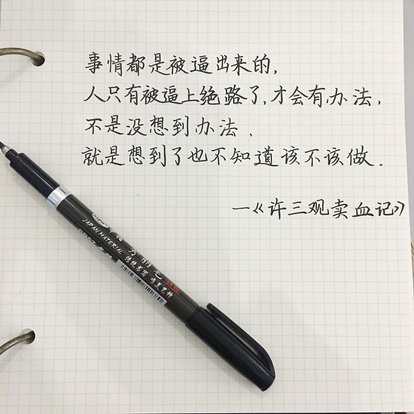 事情都是被逼出来的,
人只有被逼上绝路了,才会有办法,
不是没想到办法.
就是想到了也不知道该不该做.
—《许三观卖血记》
JAPAN MATERIAL